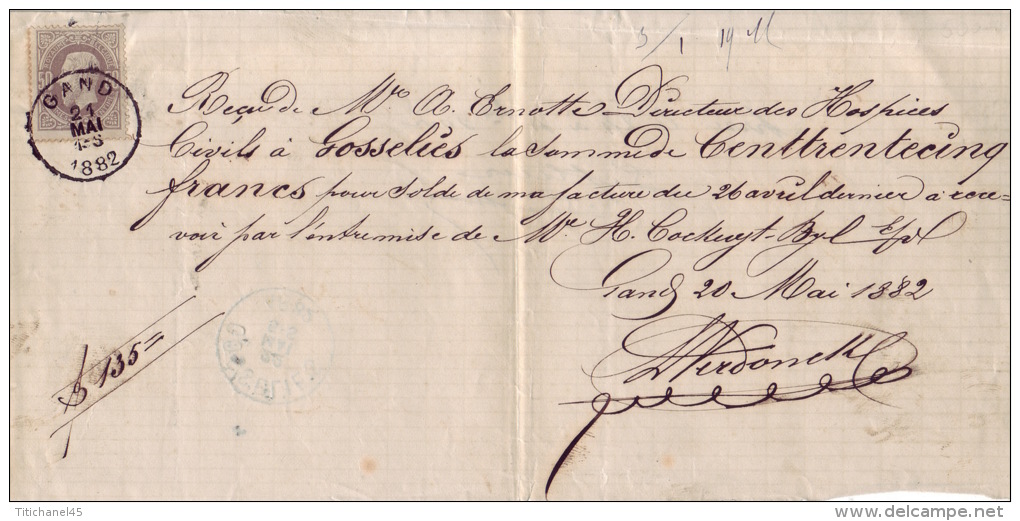 5/1 19
50
GAND
21
MAI
1-3
1882
Reçu de Mr. A. Ernotte Directeur des Hospices
Civils à Gosseliès la somme de Centtrentecinq
francs pour solde de ma facture du 26 avril dernier à rece-
voir par l'entremise de Mr. H. Cockuyt-Byl
Gand 20 Mai 1882
135=
Verdonck
Titichanel45
www.delcampe.net